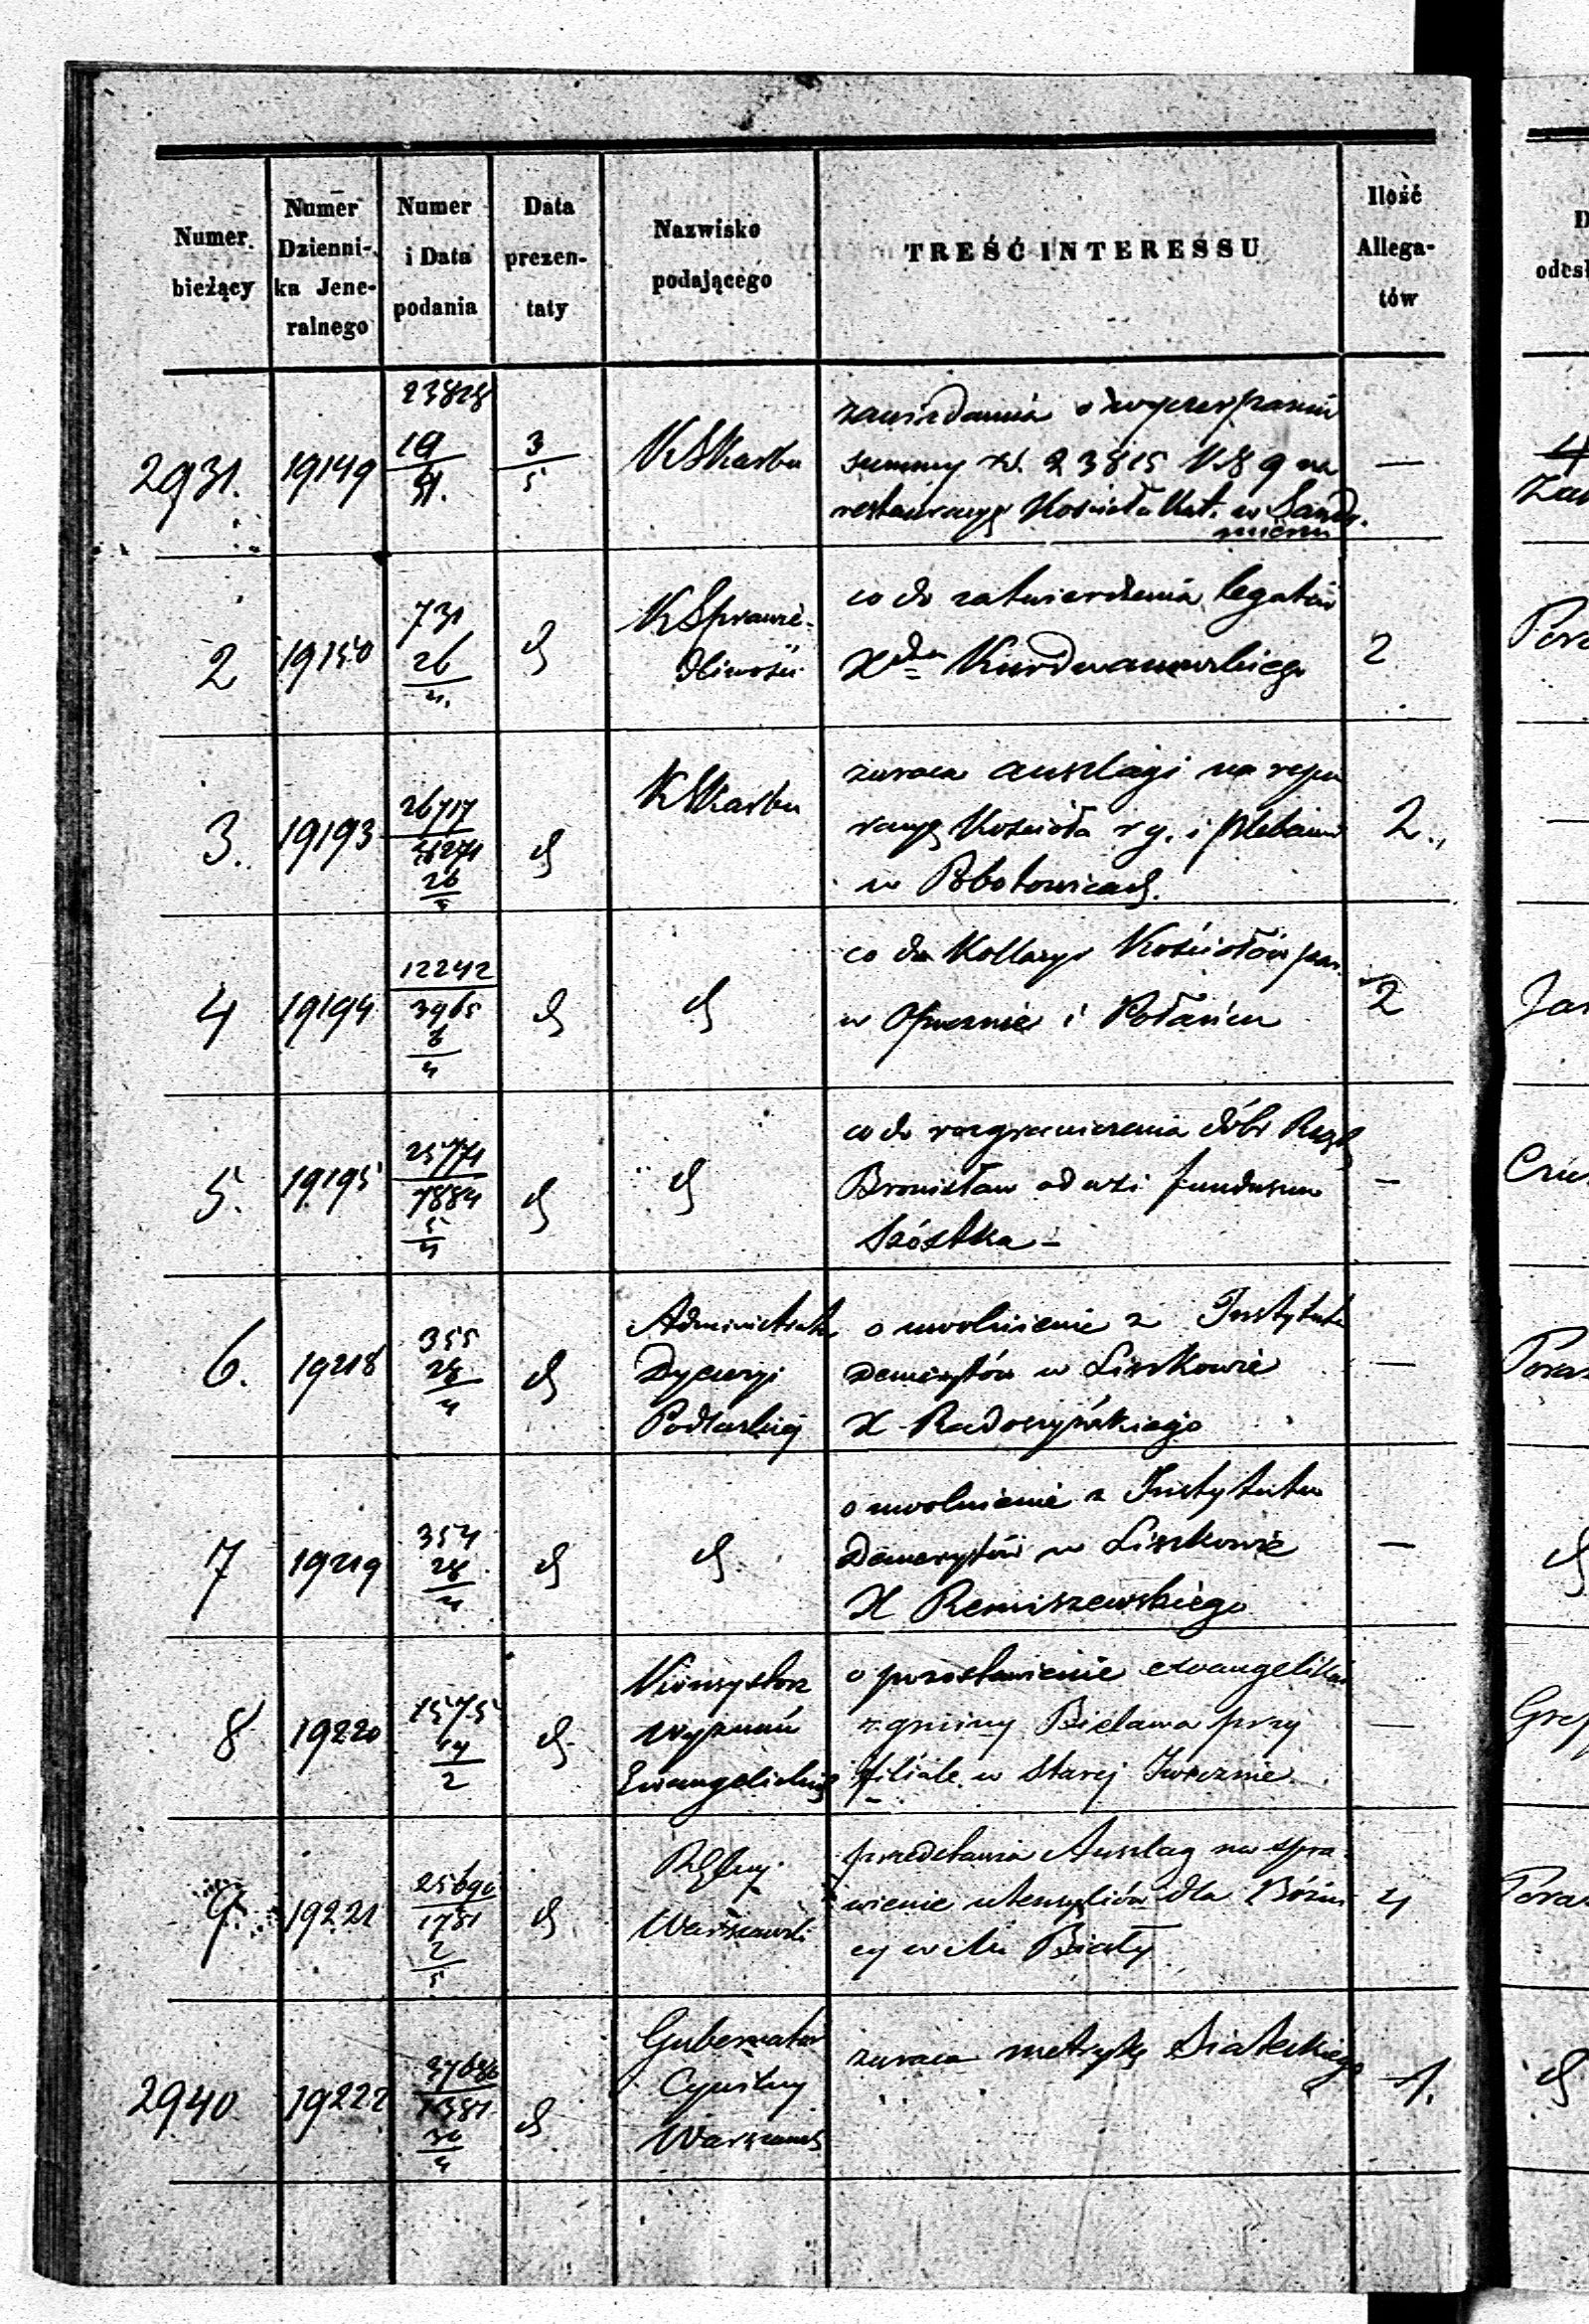 Numer bieżący
Numer Dzienni- ka Jene- ralnego
Numer i Data podania
Data prezen- taty
Nazwisko podającego
TREŚĆ INTERESSU
Ilość Allega- tów
2931. 19149 23828 19/4. 3/5 K Skarbu
zawiadamia o wyczerpaniu
summy rs. 23815 k. 89 na
restauracyę Kościoła Kat. w Sando-
mierzu
—
2 19150 731 26/4. d
K Sprawie-
dliwości
co do zatwierdzenia legatów
Xdza Kurdwanowskiego
2
3. 19193 26717 26/4 d K Skarbu
zwraca anszlagi na repa
racyę Kościoła r g. i plebanii
w Pobotowicach.
2.
4 19194 12242/3965 6/4 d d
co do Kollacyi Kościołów par.
w Opocznie i Połańcu
2
5. 19195 25774/7884 5/4 d d
co do rozgraniczenia dóbr Rząd
Bronisław od wsi funduszu
Szóstka –
–
6. 19218 355 28/4 d
Administrator
Dyecezyi
Podlaskiej
o uwolnienie z Instytutu
Demerytów w Liszkowie
X Radoszyńskiego
—
7 19219 354 28/4 d d
o uwolnienie z Instytutu
Demerytów w Liszkowie
X Remiszewskiego
—
8 19220 1575 14/2 d
Konsystorz
wyznań
Ewangelickich
o pozostawienie ewangelików
z gminy Bielawa przy
filiale w Starej Iwicznie
—
9 19221 25690/1751 2/5 d
R Gbny
Warszawski
przedstawia Anszlag na spra
wienie utensyliów dla Bóżni
cy w m. Biały
4
2940 19222 30/4 d
Gubernator
Cywilny
Warszawski
zwraca metrykę Siateckiego
1.